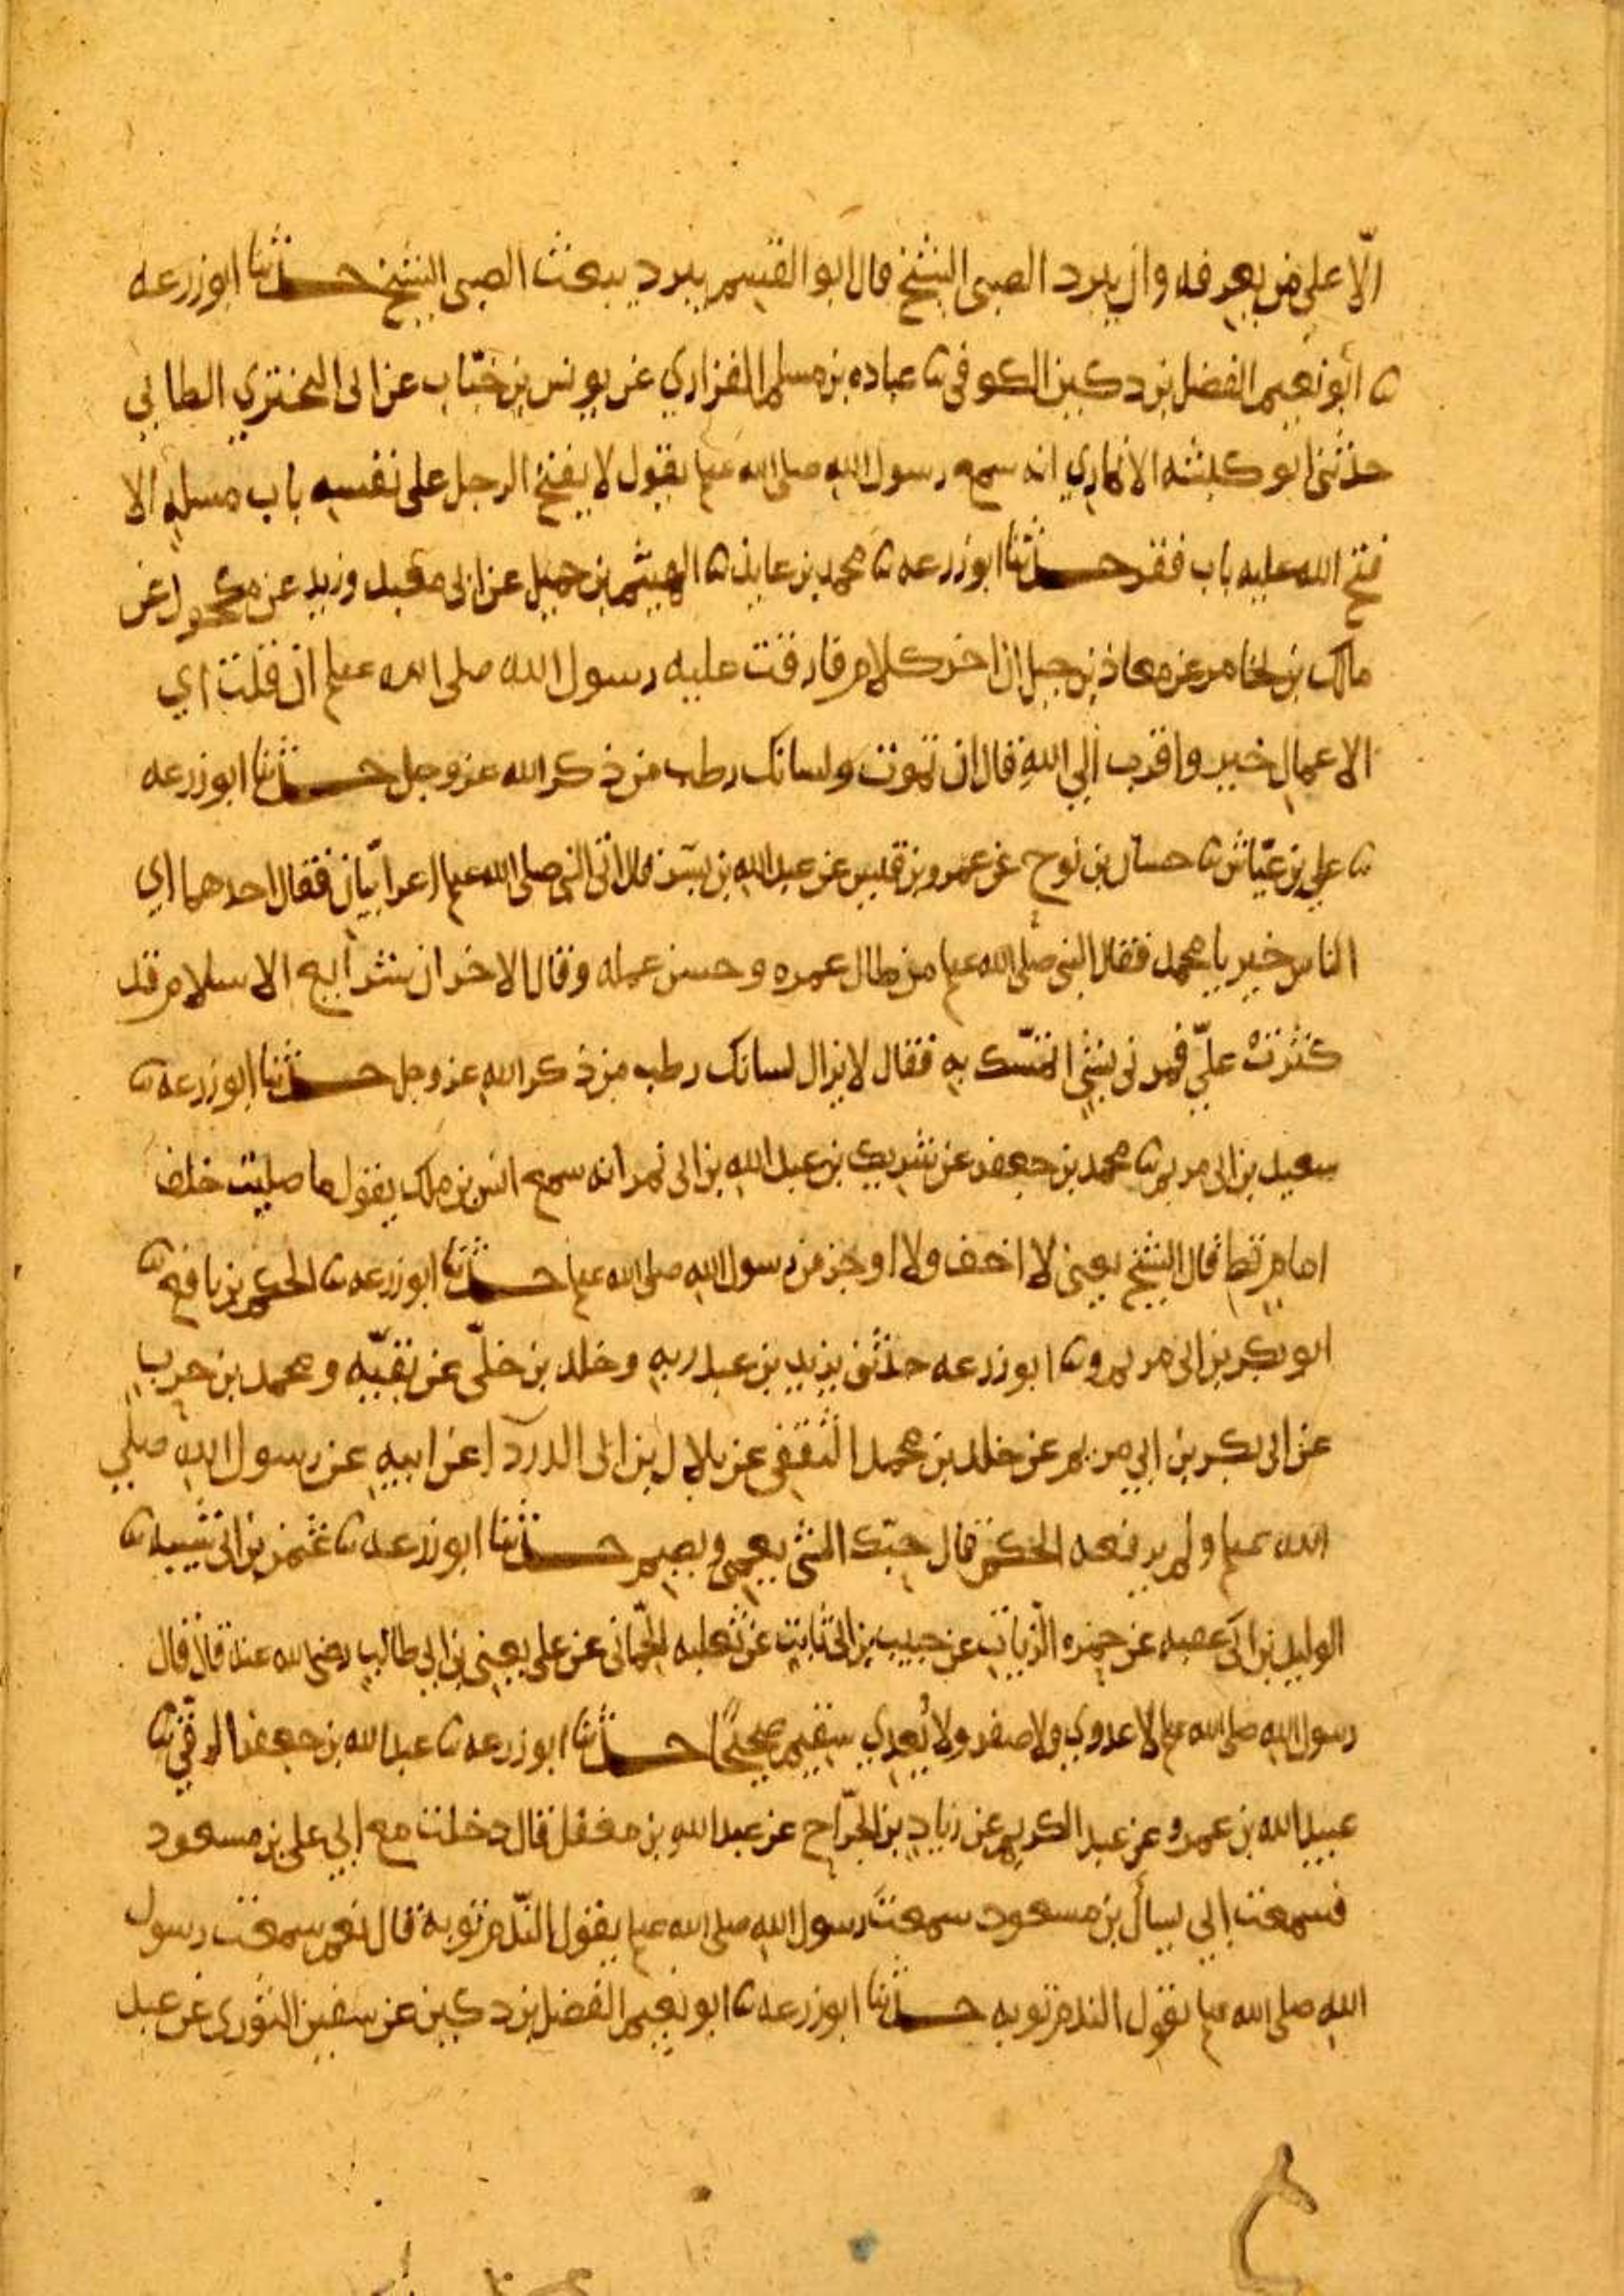 الّا على من يعرفه وان يبرد الصبى الشيخ قال ابو القسم يبرد يبعث الصبى الشيخ حدثنا ابو زرعه
ثنا ابو نعيم الفضل بن دكين الكوفى ثنا عباده بن مسلم الفزاري عن يونس بن خبّاب عن ابى البختري الطايى
حدثنى ابو كبشه الانماري انه سمع رسول الله صلى الله علم يقول لا يفتح الرجل على نفسه باب مسله الا
فتح الله عليه باب فقر حدثنا ابو زرعه ثنا محمد بن عايذ ثنا الهيثم بن حميل عن ابى معبد وزيد عن مكحول عن
مالك بن يخامر عن معاذ بن جبل ان اخر كلام فارقت عليه رسول الله صلى الله علم ان قلت اي
الاعمال خير واقرب الي الله قال ان تموت ولسانك رطب من ذكر الله عز وجل حدثنا ابو زرعه
ثنا علي بن عيّاش ثنا حسان بن نوح عن عمرو بن قيس عن عبد الله بن بسر قال اتى النبى صلى الله علم اعرابيّان فقال احدهما اي
الناس خير يا محمد فقال النبى صلى الله علم من طال عمره وحسن عمله وقال الاخر ان شرايع الاسلام قد
كثرت عليّ فمرنى بشئ اتمسّك به فقال لا يزال لسانك رطب من ذكر الله عز وجل حدثنا ابو زرعه ثنا
سعيد بن ابى مريم ثنا محمد بن جعفر عن شريك بن عبد الله بن ابى نمر انه سمع انس بن ملك يقول ما صليت خلف
امام قط قال الشيخ يعنى لا اخف ولا اوجز من رسول الله صلى الله علم حدثنا ابو زرعه ثنا الحكم بن نافع ثنا
ابو بكر بن ابى مريم وثنا ابو زرعه حدثنى يزيد بن عبد ربه وخلد بن خلّى عن بقيّه ومحمد بن حرب
عن ابى بكر بن ابي مريم عن خلد بن محمد الثقفى عن بلال بن ابى الدرداء عن ابيه عن رسول الله صلي
الله علم ولم يرفعه الحكم قال حبّك الشى يعمى ويصم حدثنا ابو زرعه ثنا عثمن بن ابى شيبه ثنا
الوليد بن عقبه عن حمزه الزّيات عن حبيب بن ابى ثابت عن ثعلبه الحمّانى عن على يعنى بن ابي طالب رضى الله عنه قال قال
رسول الله صلى الله علم لا عدوي ولا صفر ولا يُعدي سقيم صحيحًا حدثنا ابو زرعه ثنا عبد الله بن جعفر الرقّى ثنا
عبيد الله بن عمرو عن عبد الكريم عن زياد بن الجرّاح عن عبد الله بن معقل قال دخلت مع ابي على بن مسعود
فسمعت ابي يسأل بن مسعود سمعتَ رسول الله صلى الله علم يقول النّدم توبة قال نعم سمعت رسول
الله صلى الله علم يقول الندم توبه حدثنا ابو زرعه ثنا ابو نعيم الفضل بن دكين عن سفين الثوري عن عبد